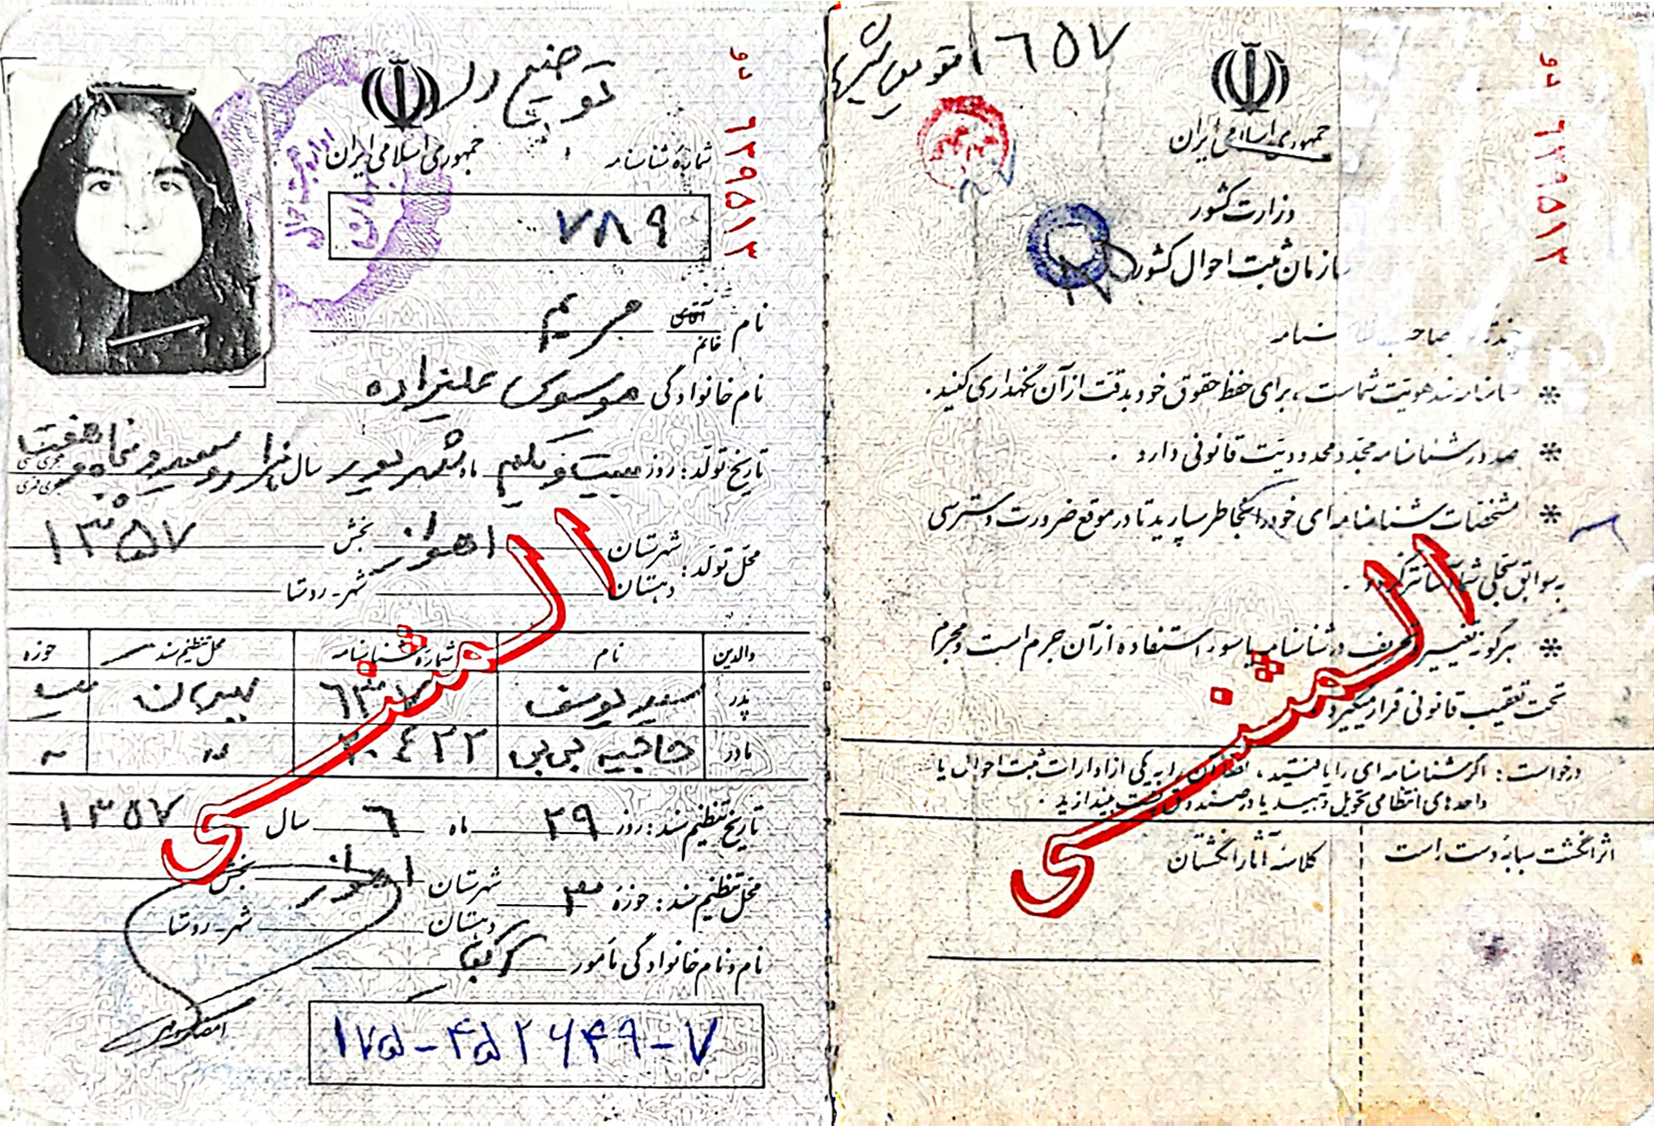 توضیح دارد
جمهوری اسلامی ایران
شمارهٔ شناسنامه
۷۸۹
دو ۶۲۹۵۱۳
نام آقای خانم مریم
نام خانوادگی موسوی علیزاده
تاریخ تولد: روز بیست و یکم ماه شهریور سال هزار و سیصد و پنجاه و هفت هجری شمسی هجری قمری
۱۳۵۷
محل تولد: شهرستان اهواز بخش
دهستان شهر-روستا
والدین نام شمارهٔ شناسنامه محل تنظیم سند حوزه
پدر سید یوسف
مادر حاجیه بی بی ۲۰۴۲۲ " "
تاریخ تنظیم سند: روز ۲۹ ماه ۶ سال ۱۳۵۷
محل تنظیم سند: حوزه ۳ شهرستان اهواز بخش
دهستان شهر-روستا
نام و نام خانوادگی مأمور
امضاء و مهر
۱۷۵-۴۵۲۶۴۹-۷
المثنی
۱۶۵۷
جمهوری اسلامی ایران
وزارت کشور
سازمان ثبت احوال کشور
دو ۶۲۹۵۱۳
* شناسنامه سند هویت شماست، برای حفظ حقوق خود بدقت از آن نگهداری کنید.
* صدور شناسنامه مجدد محدودیت قانونی دارد.
* مشخصات شناسنامه ای خود را بخاطر بسپارید تا در موقع ضرورت دسترسی
به سوابق سجلی شما آسانتر گردد.
* هرگونه تغییر و تحریف در شناسنامه یا سوء استفاده از آن جرم است و مجرم
تحت تعقیب قانونی قرار میگیرد.
درخواست: اگر شناسنامه ای را یافتید، لطفا آن را به یکی از ادارات ثبت احوال یا
واحدهای انتظامی تحویل دهید یا در صندوق پست بیندازید.
اثر انگشت سبابهٔ دست راست
کلاسهٔ آثار انگشتان
المثنی